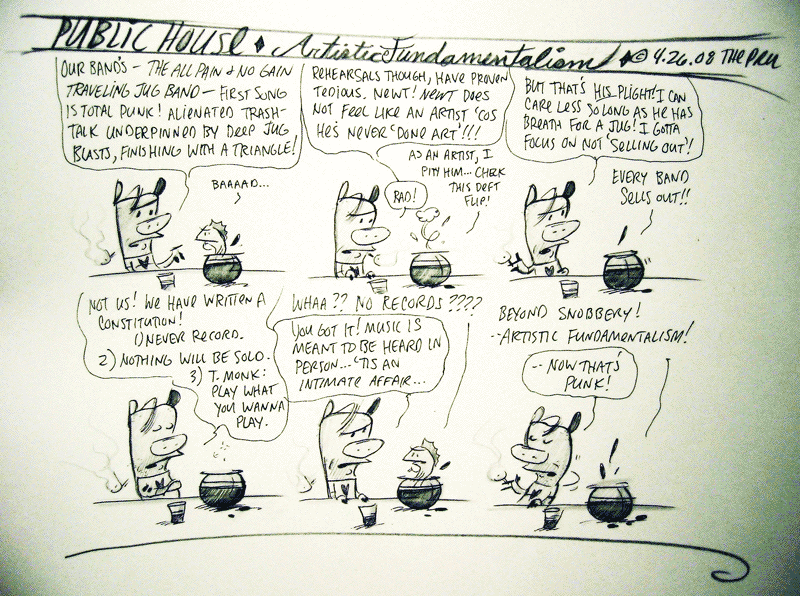 PUBLIC HOUSE ♦ Artistic Fundamentalism ♦ © 4.26.08 THE PRU
OUR BAND'S – THE ALL PAIN & NO GAIN
TRAVELING JUG BAND – FIRST SONG
IS TOTAL PUNK! ALIENATED TRASH-
TALK UNDERPINNED BY DEEP JUG
BLASTS, FINISHING WITH A TRIANGLE!
BAAAAD...
REHEARSALS THOUGH, HAVE PROVEN
TEDIOUS. NEWT! NEWT DOES
NOT FEEL LIKE AN ARTIST 'COS
HE'S NEVER 'DONE ART'!!!
AS AN ARTIST, I
PITY HIM... CHECK
THIS DEFT
FLIP!
RAD!
BUT THAT'S HIS PLIGHT! I CAN
CARE LESS SO LONG AS HE HAS
BREATH FOR A JUG! I GOTTA
FOCUS ON NOT 'SELLING OUT'!
EVERY BAND
SELLS OUT!!
NOT US! WE HAVE WRITTEN A
CONSTITUTION!
1) NEVER RECORD.
2) NOTHING WILL BE SOLD.
3) T. MONK:
PLAY WHAT
YOU WANNA
PLAY.
WHAA?? NO RECORDS????
YOU GOT IT! MUSIC IS
MEANT TO BE HEARD IN
PERSON... 'TIS AN
INTIMATE AFFAIR...
BEYOND SNOBBERY!
--ARTISTIC FUNDAMENTALISM!
-- NOW THAT'S
PUNK!